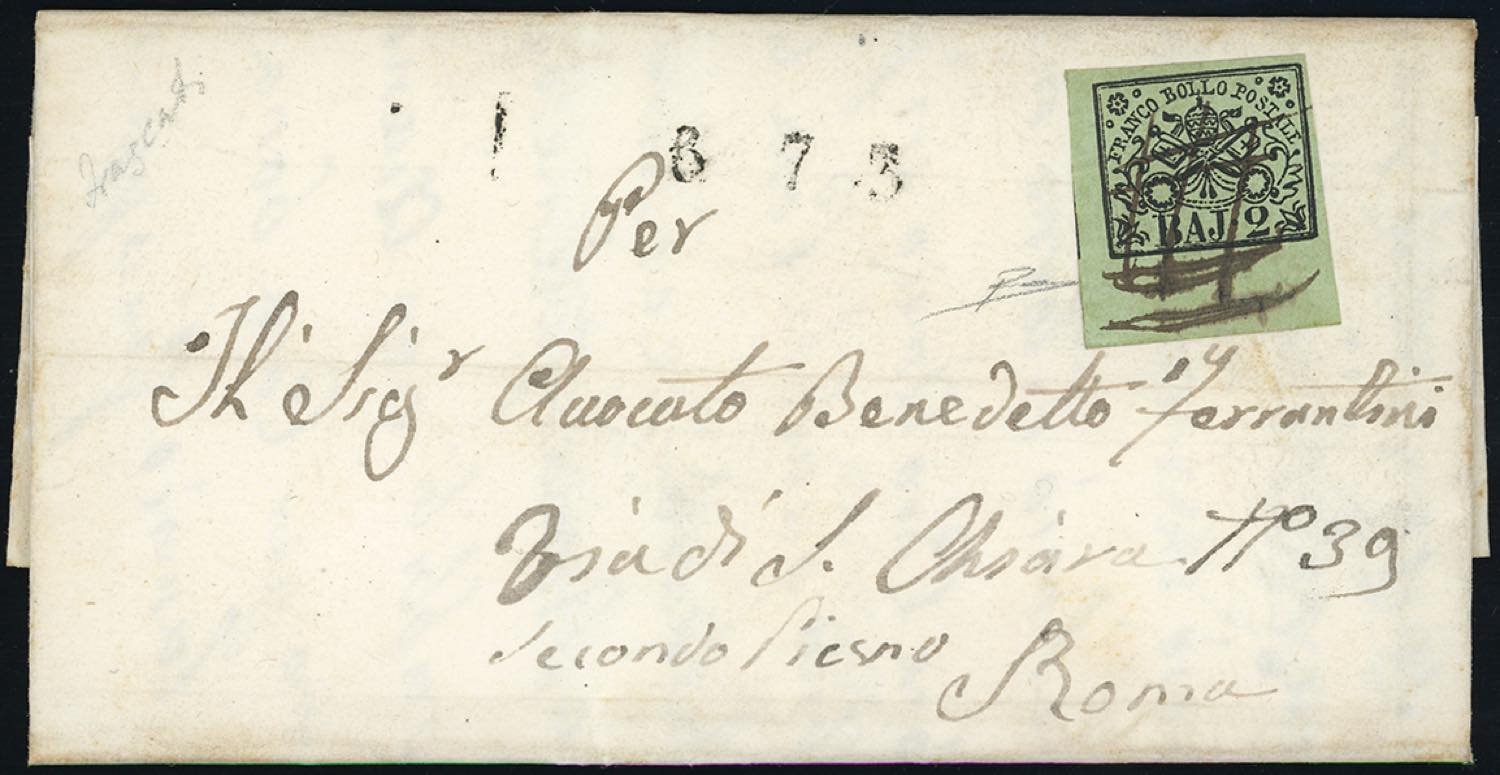 frascati
1 6 7 3
FRANCO BOLLO POSTALE
BAJ. 2
Per
Il Sigr Avocato Benedetto Ferrantini
Via di S. Chiara No 39
Secondo Piano
Roma